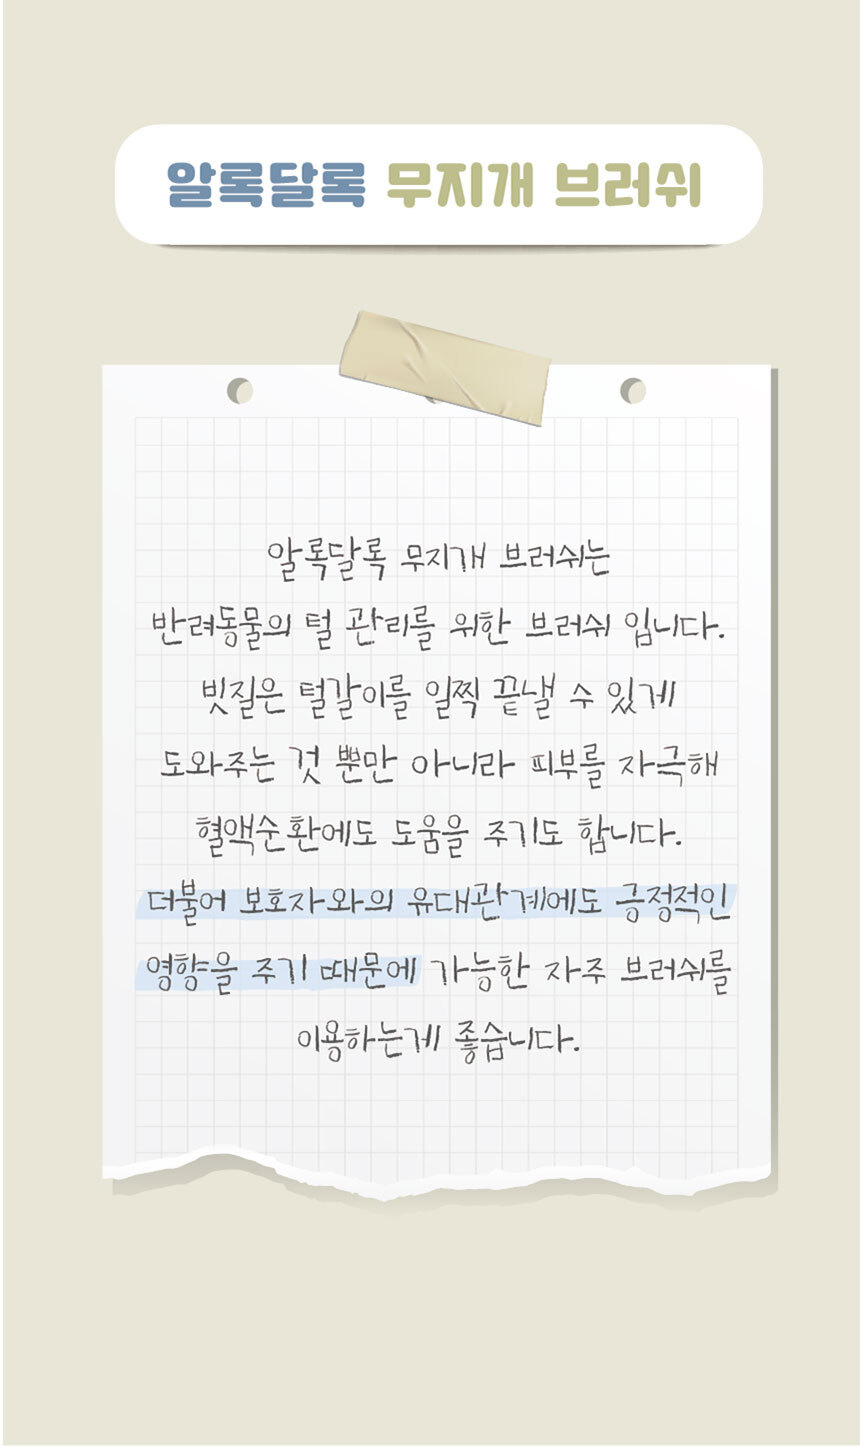 알록달록 무지개 브러쉬
알록달록 무지개 브러쉬는
반려동물의 털 관리를 위한 브러쉬 입니다.
빗질은 털갈이를 일찍 끝낼 수 있게
도와주는 것 뿐만 아니라 피부를 자극해
혈액순환에도 도움을 주기도 합니다.
더불어 보호자와의 유대관계에도 긍정적인
영향을 주기 때문에 가능한 자주 브러쉬를
이용하는게 좋습니다.